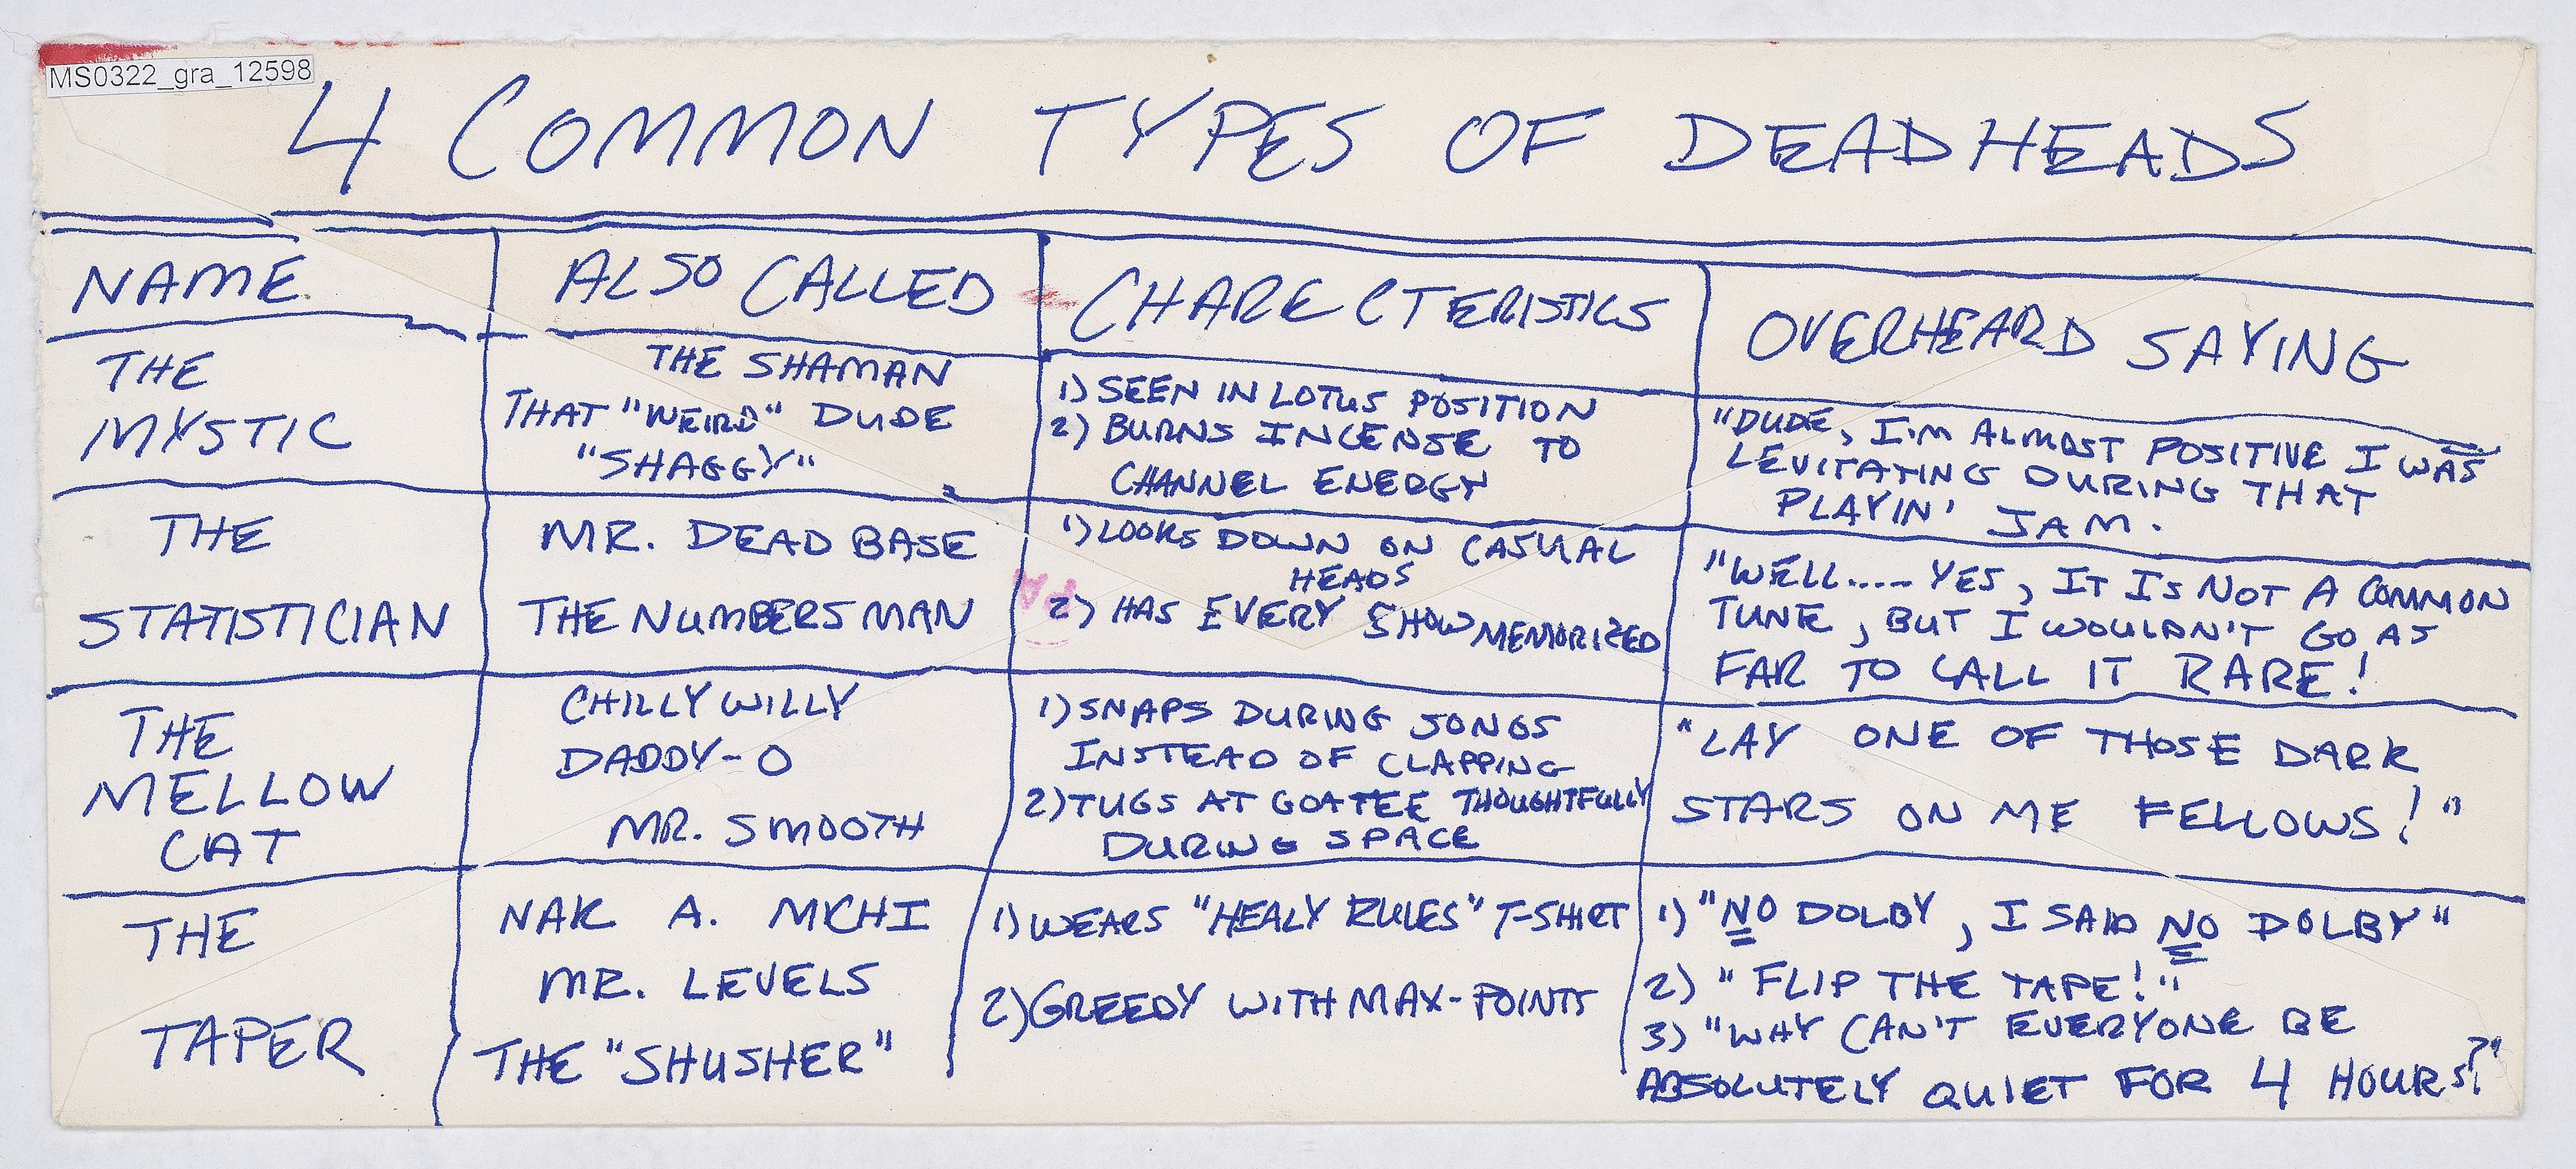 MS0322_gra_12598
4 COMMON TYPES OF DEADHEADS
NAME
ALSO CALLED
CHARECTERISTICS
OVERHEARD SAYING
THE
MYSTIC
THE SHAMAN
THAT "WEIRD" DUDE
"SHAGGY"
1) SEEN IN LOTUS POSITION
2) BURNS INCENSE TO
CHANNEL ENERGY
"DUDE, I'M ALMOST POSITIVE I WAS
LEVITATING DURING THAT
PLAYIN' JAM.
THE
STATISTICIAN
MR. DEAD BASE
THE NUMBERS MAN
1) LOOKS DOWN ON CASUAL
HEADS
2) HAS EVERY SHOW MEMORIZED
"WELL..... YES, IT IS NOT A COMMON
TUNE, BUT I WOULDN'T GO AS
FAR TO CALL IT RARE!
THE
MELLOW
CAT
CHILLY WILLY
DADDY-O
MR. SMOOTH
1) SNAPS DURING SONGS
INSTEAD OF CLAPPING
2) TUGS AT GOATEE THOUGHTFULLY
DURING SPACE
"LAY ONE OF THOSE DARK
STARS ON ME FELLOWS!"
THE
TAPER
NAK A. MICHI
MR. LEVELS
THE "SHUSHER"
1) WEARS "HEALY RULES" T-SHIRT
2) GREEDY WITH MAX-POINTS
1) "NO DOLBY, I SAID NO DOLBY"
2) "FLIP THE TAPE!"
3) "WHY CAN'T EVERYONE BE
ABSOLUTELY QUIET FOR 4 HOURS?"